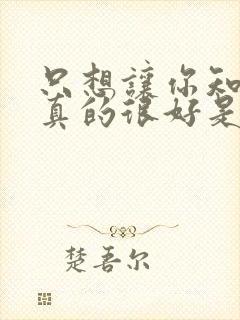 只想讓你知
真的很好是
楚吾尔